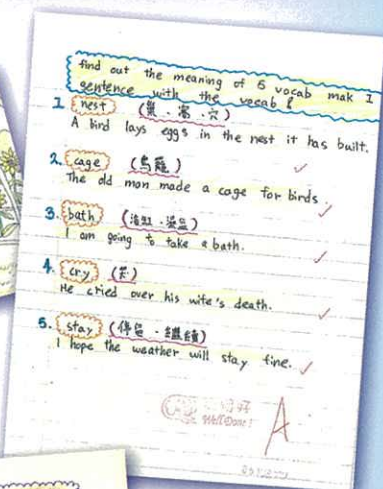 find out the meaning of 5 vocab mak 1
sentence with the vocab
1. nest (巢、窩、穴)
A bird lays eggs in the nest it has built.
2. cage (鳥籠)
The old man made a cage for birds.
3. bath (浴缸、澡盆)
I am going to take a bath.
4. cry (哭)
He cried over his wife's death.
5. stay (停留、繼續)
I hope the weather will stay fine.
A
Well Done!